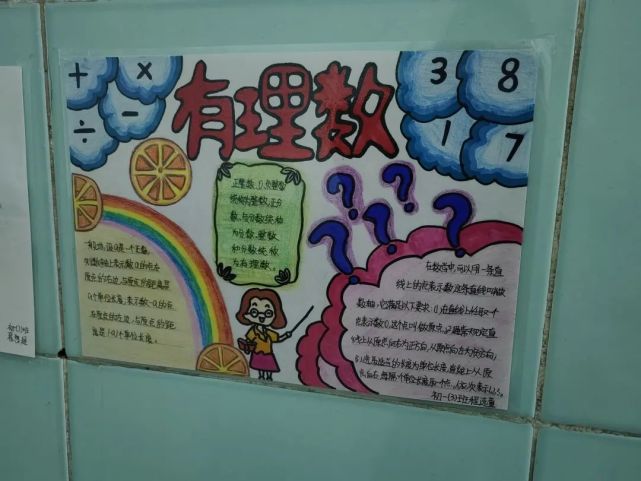 + ×
÷ -
有理数
3 8
1 7
正整数、0、负整数
统称为整数,正分
数、负分数统称
为分数,整数
和分数统称
为有理数。
一般地,设a是一个正数,
则数轴上表示数a的点在
原点的右边,与原点的距离是
a个单位长度;表示数-a的点
在原点的左边,与原点的距
离是a个单位长度。
在数学中,可以用一条直
线上的点表示数,这条直线叫做
数轴,它满足以下要求:(1)在直线上任取一个
点表示数0,这个点叫做原点;(2)通常规定直
线上从原点向右为正方向,从原点向左为负方向;
(3)选取适当的长度为单位长度,直线上从原
点向右,每隔一个单位长度取一个点,依次表示1,2,3,
初一(3)班